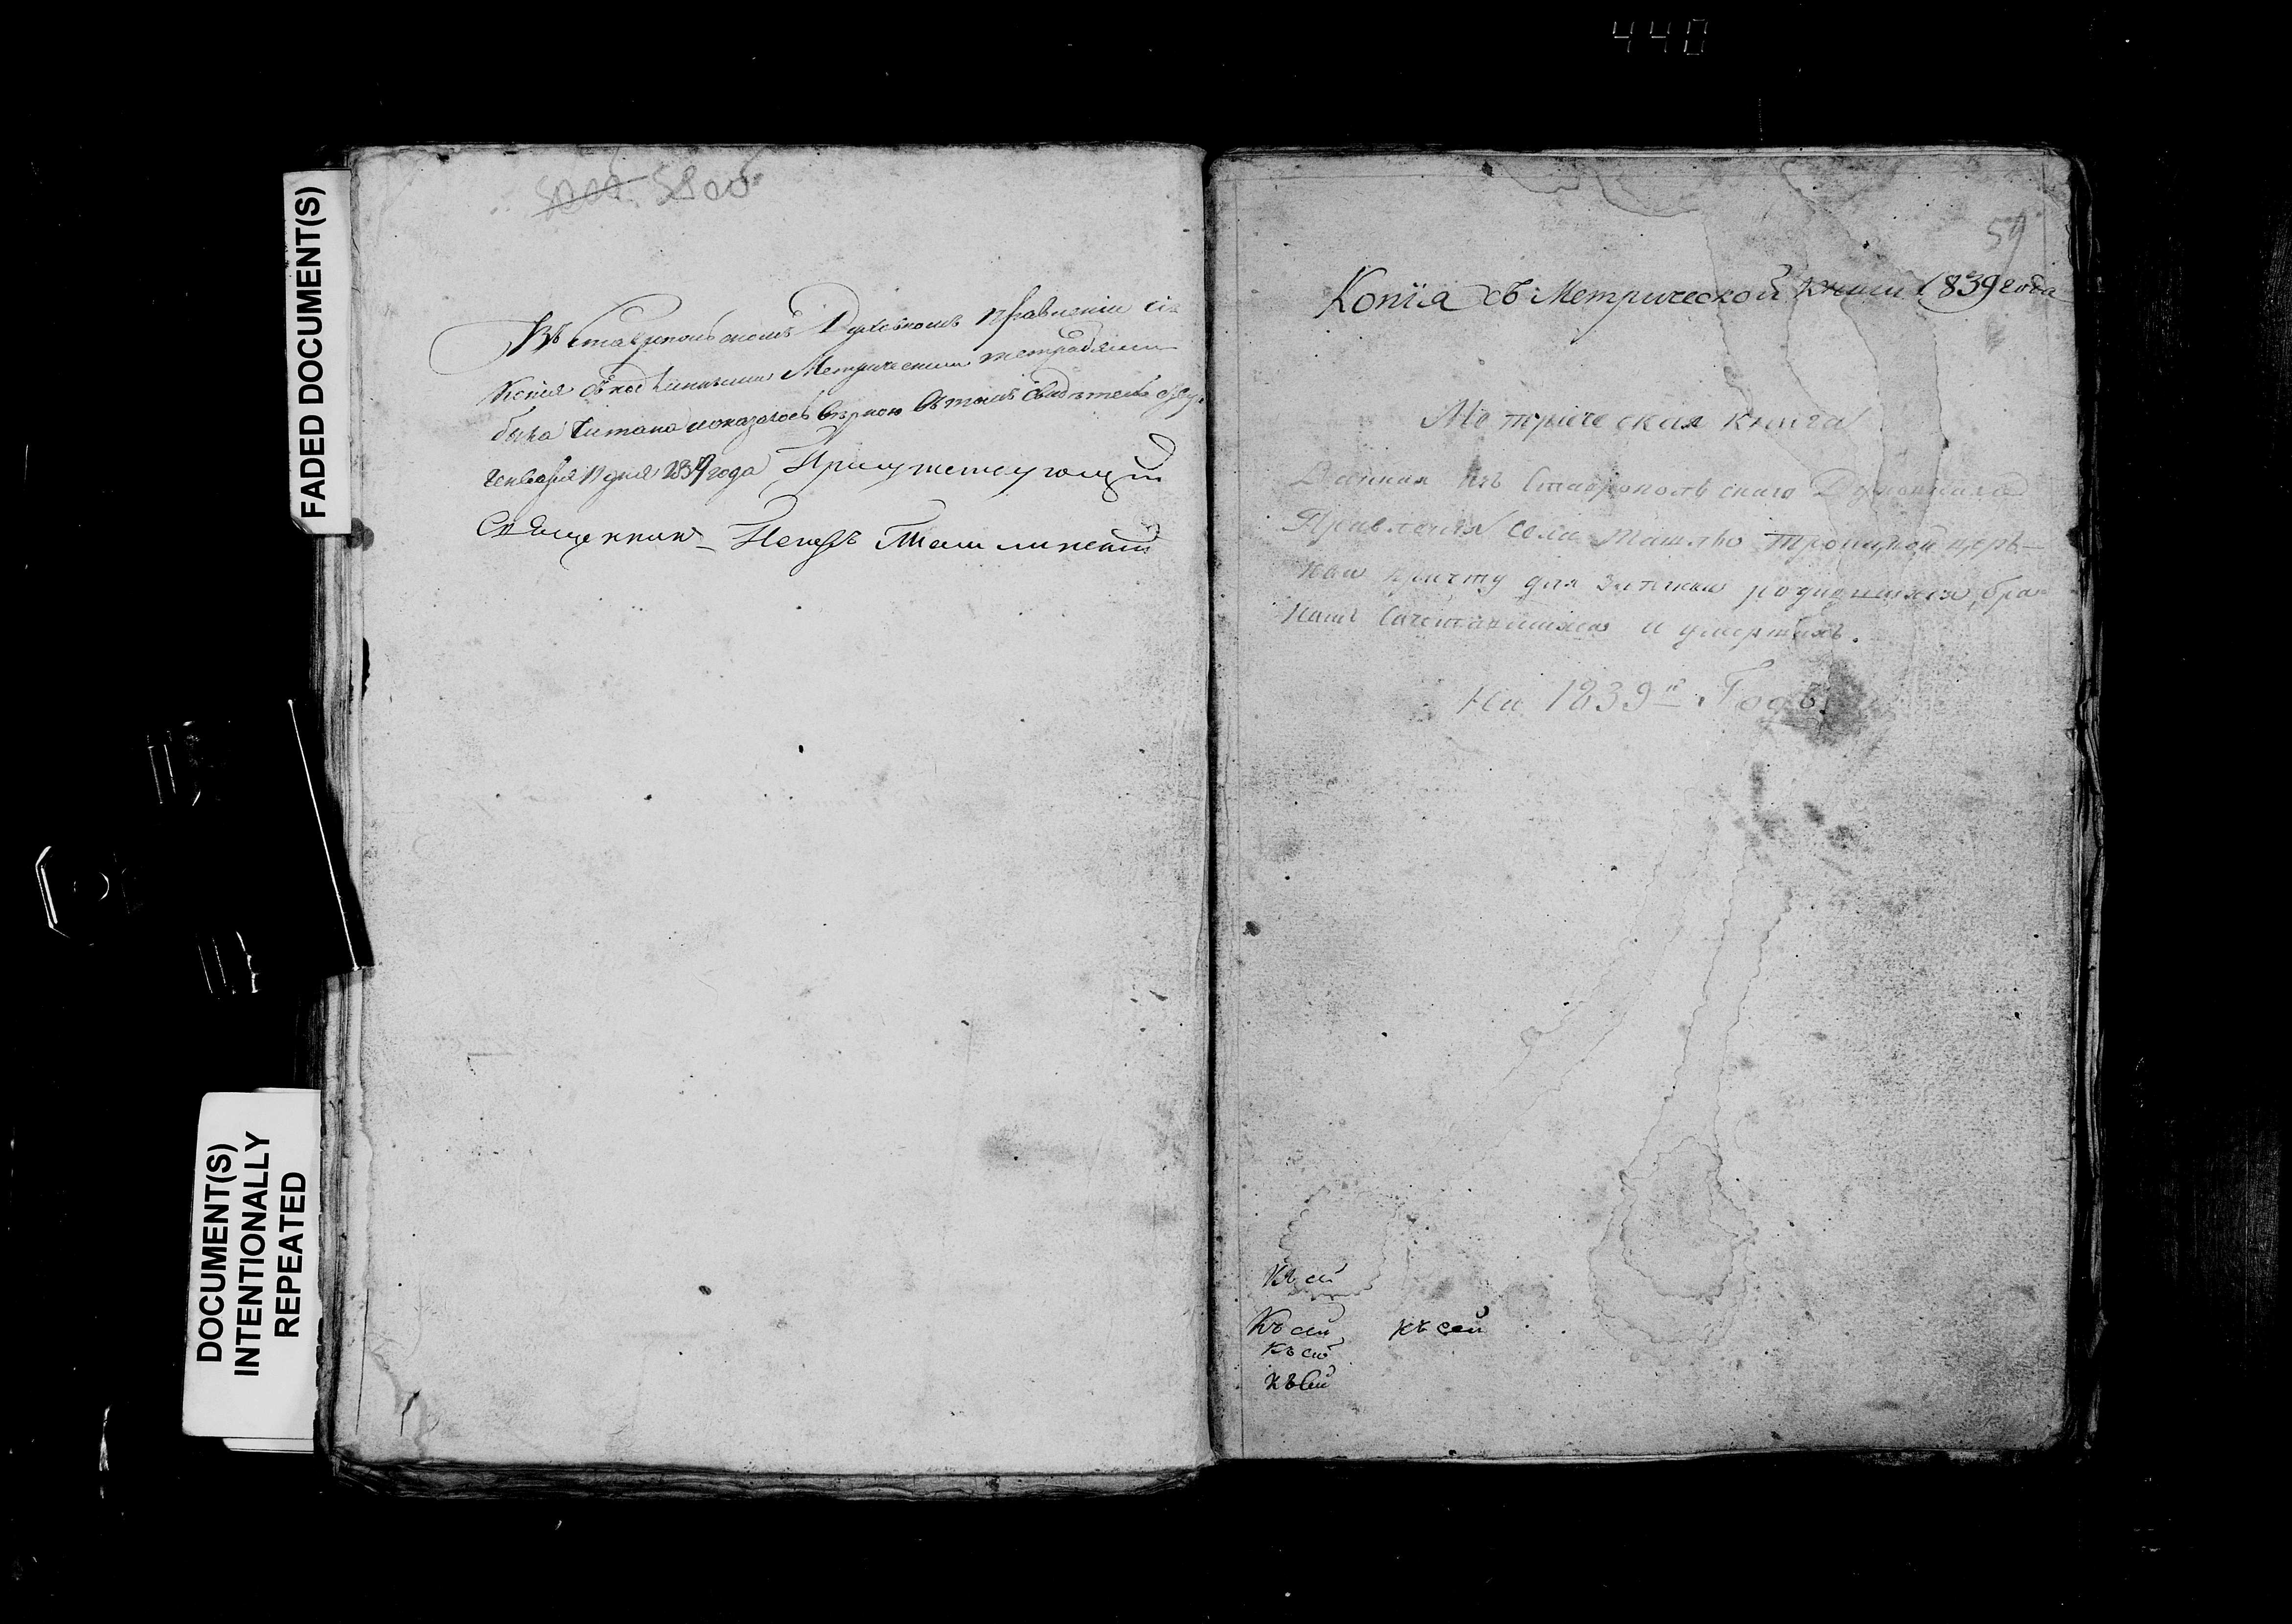 440
FADED DOCUMENT(S)
DOCUMENT(S)
INTENTIONALLY
REPEATED
5800
Въ Ставропольскомъ Духовномъ Правленіи сія
Копія съ подлинными Метрическими тетрадями
была читана и оказалось вѣрною въ томъ свидѣтельствую
Генваря 11 дня 1839 года Присутствующій
Священникъ Петръ Ташлинскій
59
Копїя съ Метрической Книги 1839 года
Метрическая книга
Данная изъ Ставропольскаго Духовнаго
Правленія села Ташлы Троицкой церк-
ви причту для записки родившихся, бра-
комъ сочетавшихся и умершихъ.
На 1839й Годъ.
Къ сей
Къ сей къ сей
къ сей
къ сей